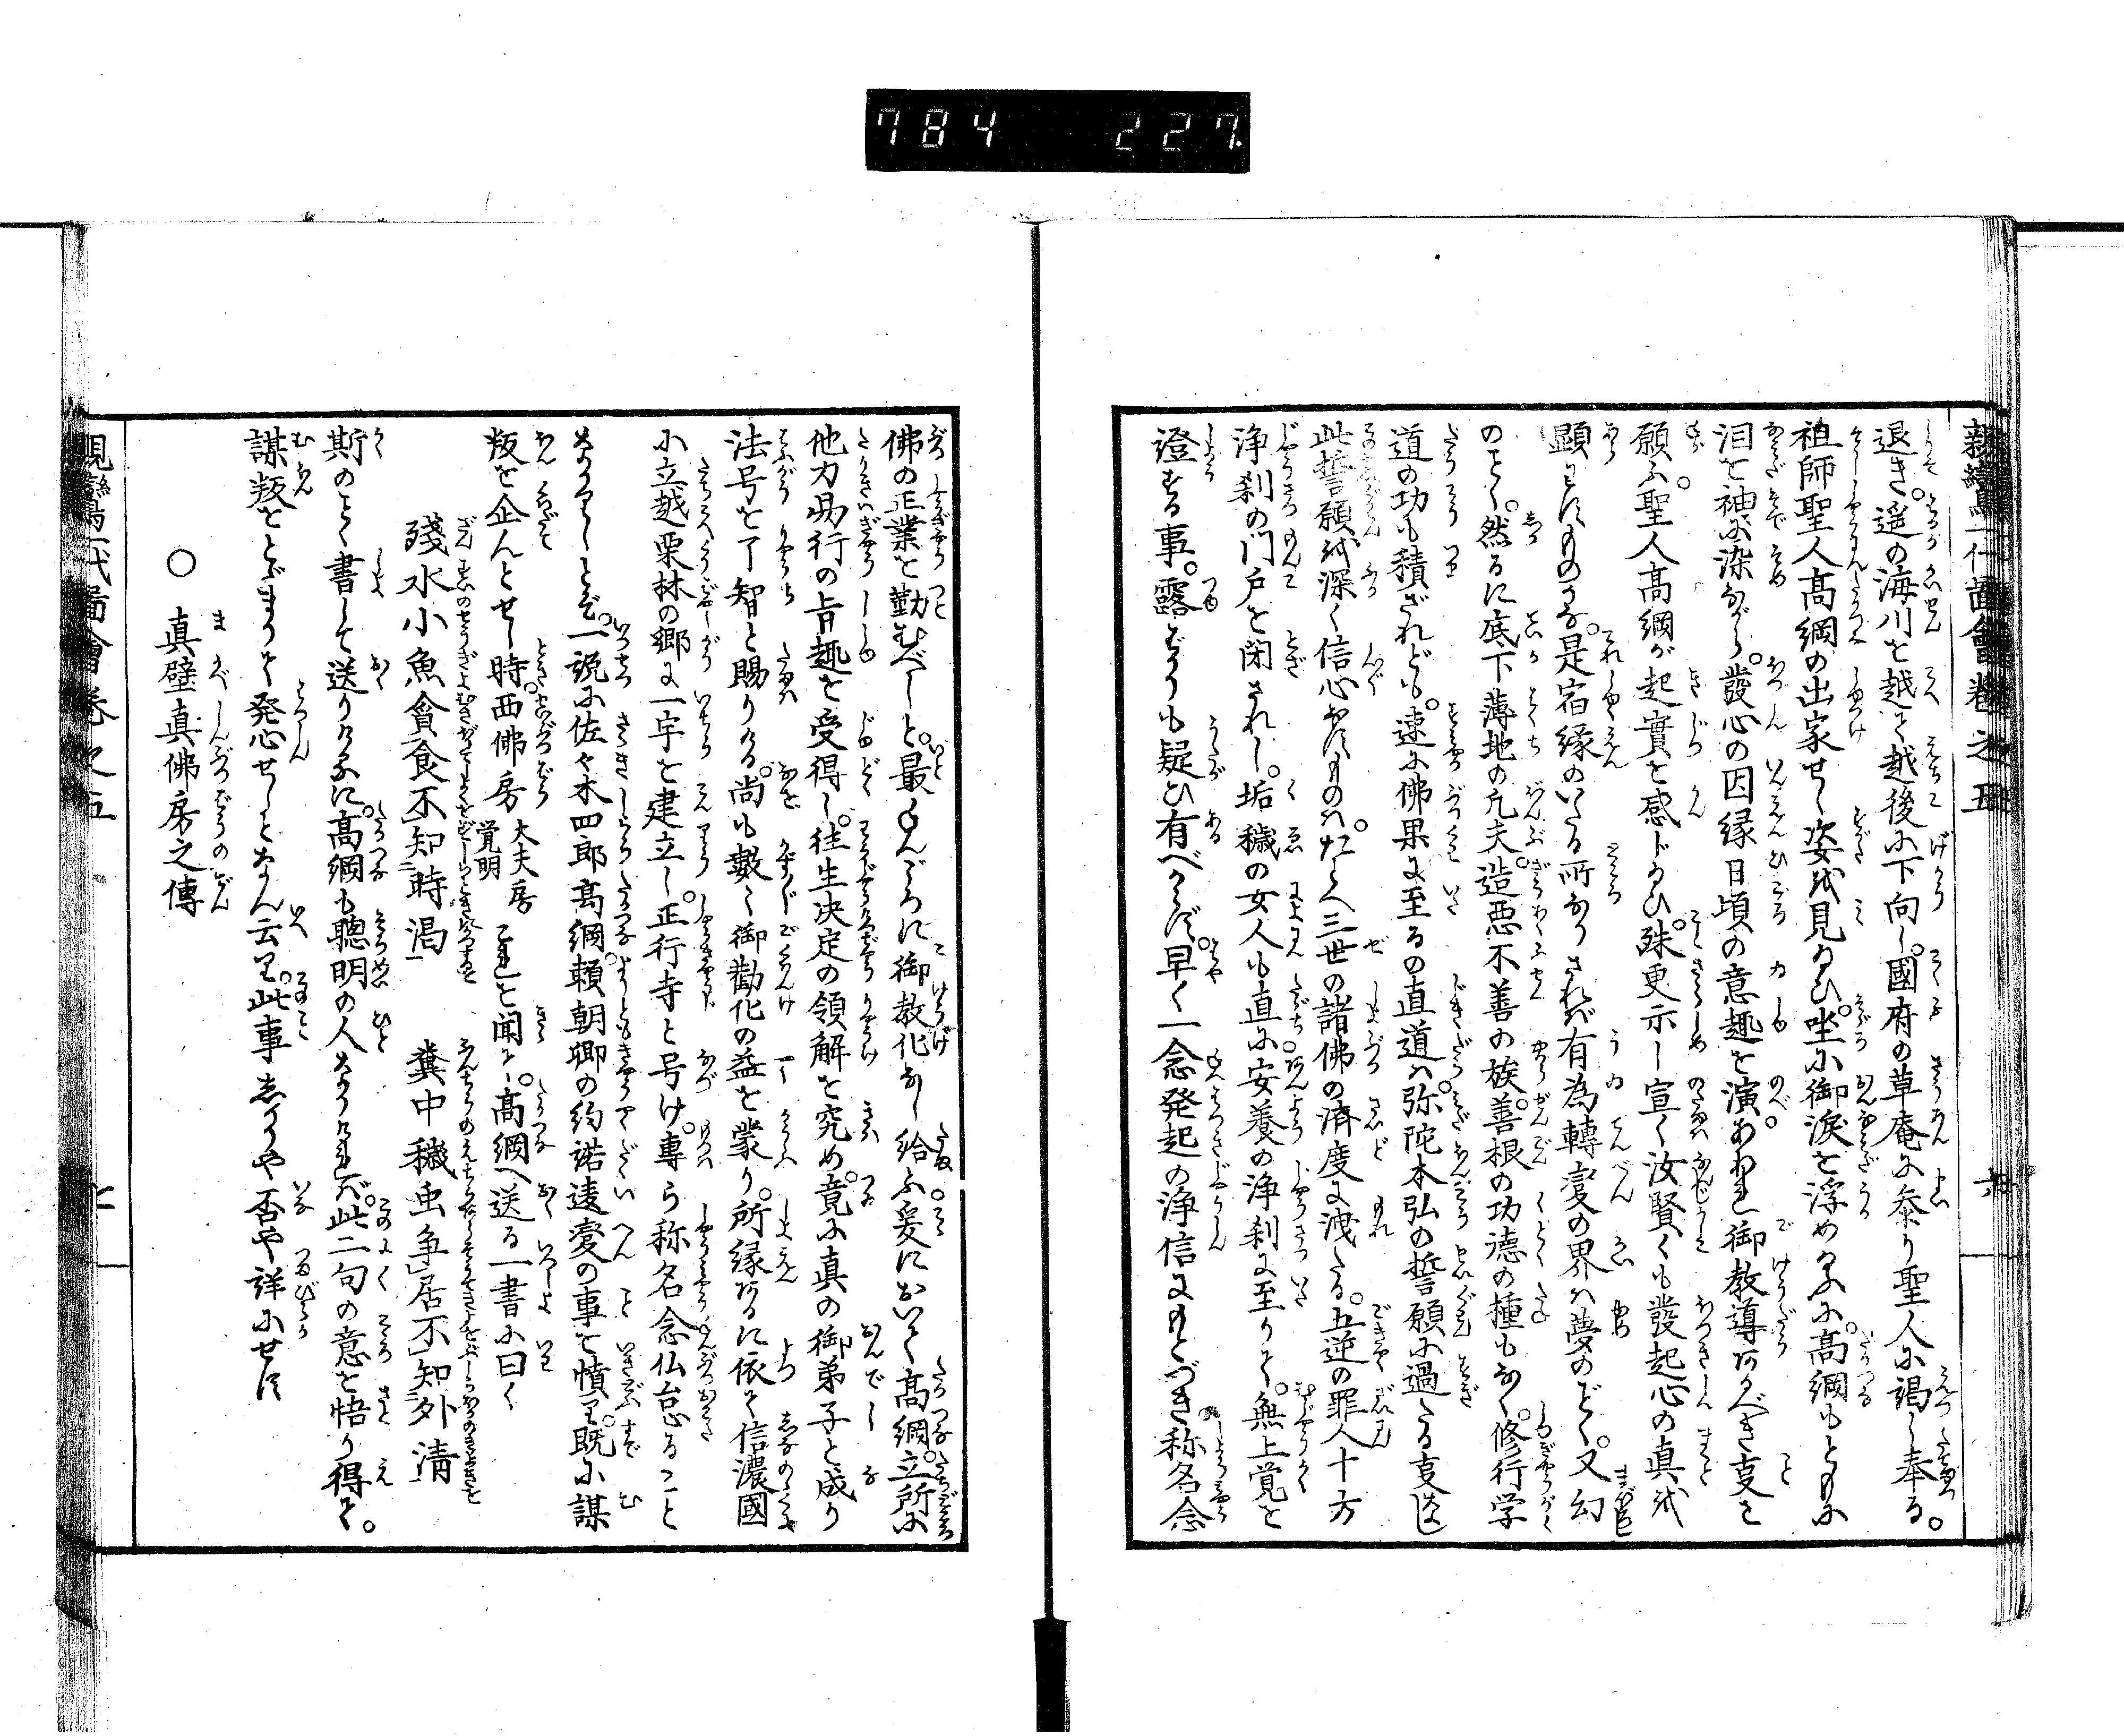 784 227
親鸞一代啚會巻之五 六
退き。遥の海川を越て越後に下向し。國府の草庵に参り聖人に謁し奉る。
祖師聖人髙綱の出家せし姿を見給ひ。坐に御涙を浮め給ふに。髙綱もともに
泪を袖に染ながら。發心の因縁日頃の意趣を演。あわれ御教導あるべき叓を
願ふ。聖人髙綱が起實を感じ給ひ。殊更示し宣く汝賢くも發起心の真を
顕はすものかな。是宿縁のいたる所なりされば有為轉変の界は夢のごとく。又幻
のごとし。然るに底下薄地の凡夫。造悪不善の族。善根の功徳の種もなく。修行学
道の功も積ざれども。速に佛果に至るの直道は。弥陀本弘の誓願に過たる叓なし
此誓願を深く信心なすものは。たとへ三世の諸佛の済度に洩たる。五逆の罪人十方
浄刹の門戸を閉されし。垢穢の女人も直に安養の浄刹に至りて。無上覚を
證する事。露ばかりも疑ひ有べからず。早く一念発起の浄信にもとづき。称名念
佛の正業を勤むべしと。最ねんごろに御教化なし給ふ爰において髙綱。立所に
他力易行の旨趣を受得し。往生决定の領解を究め。竟に真の御弟子と成り
法号を了智と賜りける。尚も數〻御勸化の益を蒙り。所縁あるに依て信濃國
に立越栗林の郷に一宇を建立し。正行寺と号け。專ら称名念仏怠ること
なかりしとぞ。一説に佐々木四郎髙綱。頼朝卿の約諾違変の事を憤り。既に謀
叛を企んとせし時。西佛房 大夫房覚明 これを聞て。髙綱へ送る一書に曰く
殘水小魚貪食不知時渇 糞中穢虫争居不知外清
斯のごとく書して送りけるに。髙綱も聰明の人なりければ。此二句の意を悟り得て。
謀叛をとゞまりて発心せしとなん云り。此事あるや否や詳にせず
○ 真壁真佛房之傳
親鸞一代啚會巻之五 七